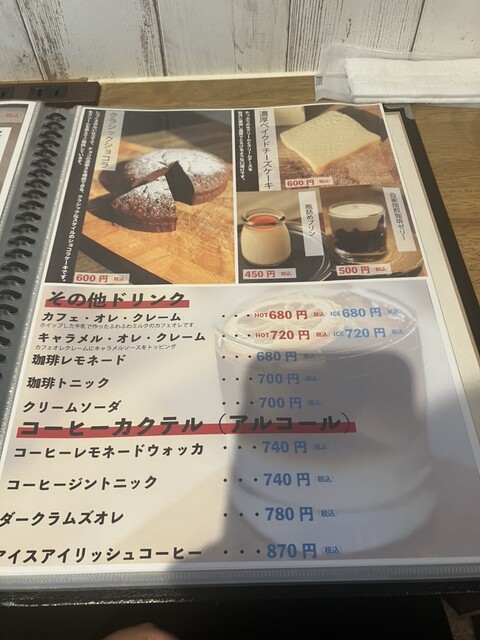 クラシックショコラ
クラシックスタイルのショコラケーキです。
600円 税込
濃厚ベイクドチーズケーキ
600円 税込
瓶詰めプリン
450円 税込
自家焙煎珈琲ゼリー
500円 税込
その他ドリンク
カフェ・オレ・クレーム ・・・HOT680円 税込 ICE680円 税込
ホイップした牛乳で作ったふわふわミルクのカフェオレです
キャラメル・オレ・クレーム ・・・HOT720円 税込 ICE720円 税込
カフェオレクレームにキャラメルソースをトッピング
珈琲レモネード ・・・680円 税込
珈琲トニック ・・・700円 税込
クリームソーダ ・・・700円 税込
コーヒーカクテル（アルコール）
コーヒーレモネードウォッカ ・・・740円 税込
コーヒージントニック ・・・740円 税込
ダークラムズオレ ・・・780円 税込
アイスアイリッシュコーヒー ・・・870円 税込